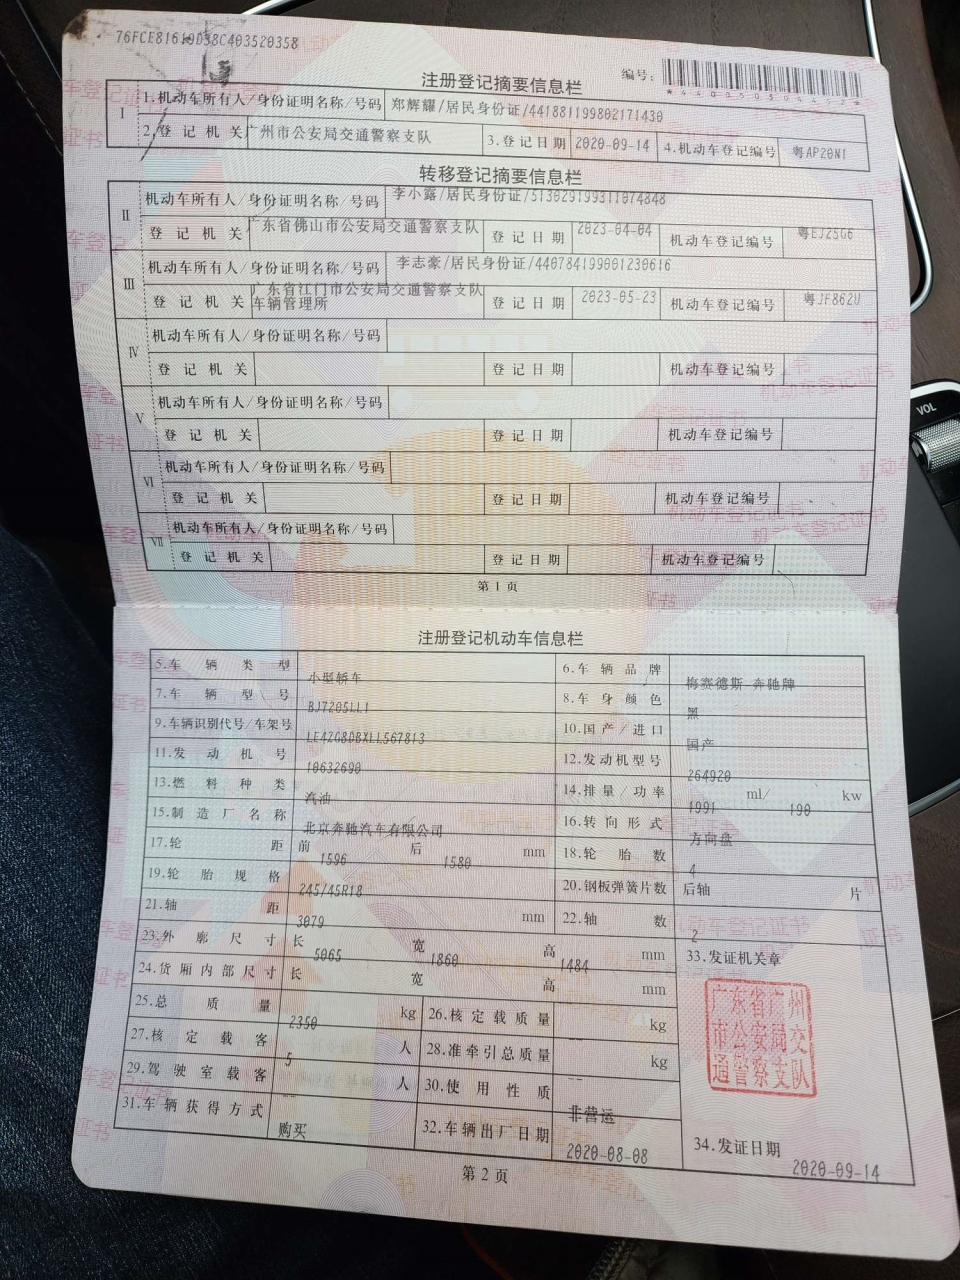 76FCE81619D38C403520358
注册登记摘要信息栏
编号:
I
1.机动车所有人/身份证明名称/号码 郑解耀/居民身份证/441881199802171430
2.登记机关 广州市公安局交通警察支队 3.登记日期 2020-09-14 4.机动车登记编号 粤AP20N1
转移登记摘要信息栏
II
机动车所有人/身份证明名称/号码 李小露/居民身份证/513029199311074848
登记机关 广东省佛山市公安局交通警察支队 登记日期 2023-04-04 机动车登记编号 粤EJ25G6
III
机动车所有人/身份证明名称/号码 李志豪/居民身份证/440784199001230616
登记机关 广东省江门市公安局交通警察支队车辆管理所 登记日期 2023-05-23 机动车登记编号 粤JF862U
IV
机动车所有人/身份证明名称/号码
登记机关 登记日期 机动车登记编号
V
机动车所有人/身份证明名称/号码
登记机关 登记日期 机动车登记编号
VI
机动车所有人/身份证明名称/号码
登记机关 登记日期 机动车登记编号
VII
机动车所有人/身份证明名称/号码
登记机关 登记日期 机动车登记编号
第1页
注册登记机动车信息栏
5.车辆类型 小型轿车 6.车辆品牌 梅赛德斯-奔驰牌
7.车辆型号 BJ7205LL1 8.车身颜色 黑
9.车辆识别代号/车架号 LE42G8DBXLL567813 10.国产/进口 国产
11.发动机号 10632690 12.发动机型号 264920
13.燃料种类 汽油 14.排量/功率 1991 ml/ 190 kw
15.制造厂名称 北京奔驰汽车有限公司 16.转向形式 方向盘
17.轮距 前 1596 后 1580 mm 18.轮胎数 4
19.轮胎规格 245/45R18 20.钢板弹簧片数 后轴 片
21.轴距 3079 mm 22.轴数 2
23.外廓尺寸 长 5065 宽 1860 高 1484 mm 33.发证机关章
24.货厢内部尺寸 长 宽 高 mm
广东省广州
市公安局交
通警察支队
25.总质量 2350 kg 26.核定载质量 -- kg
27.核定载客 5 人 28.准牵引总质量 -- kg
29.驾驶室载客 -- 人 30.使用性质 非营运
31.车辆获得方式 购买 32.车辆出厂日期 2020-08-08 34.发证日期 2020-09-14
第2页
VOL